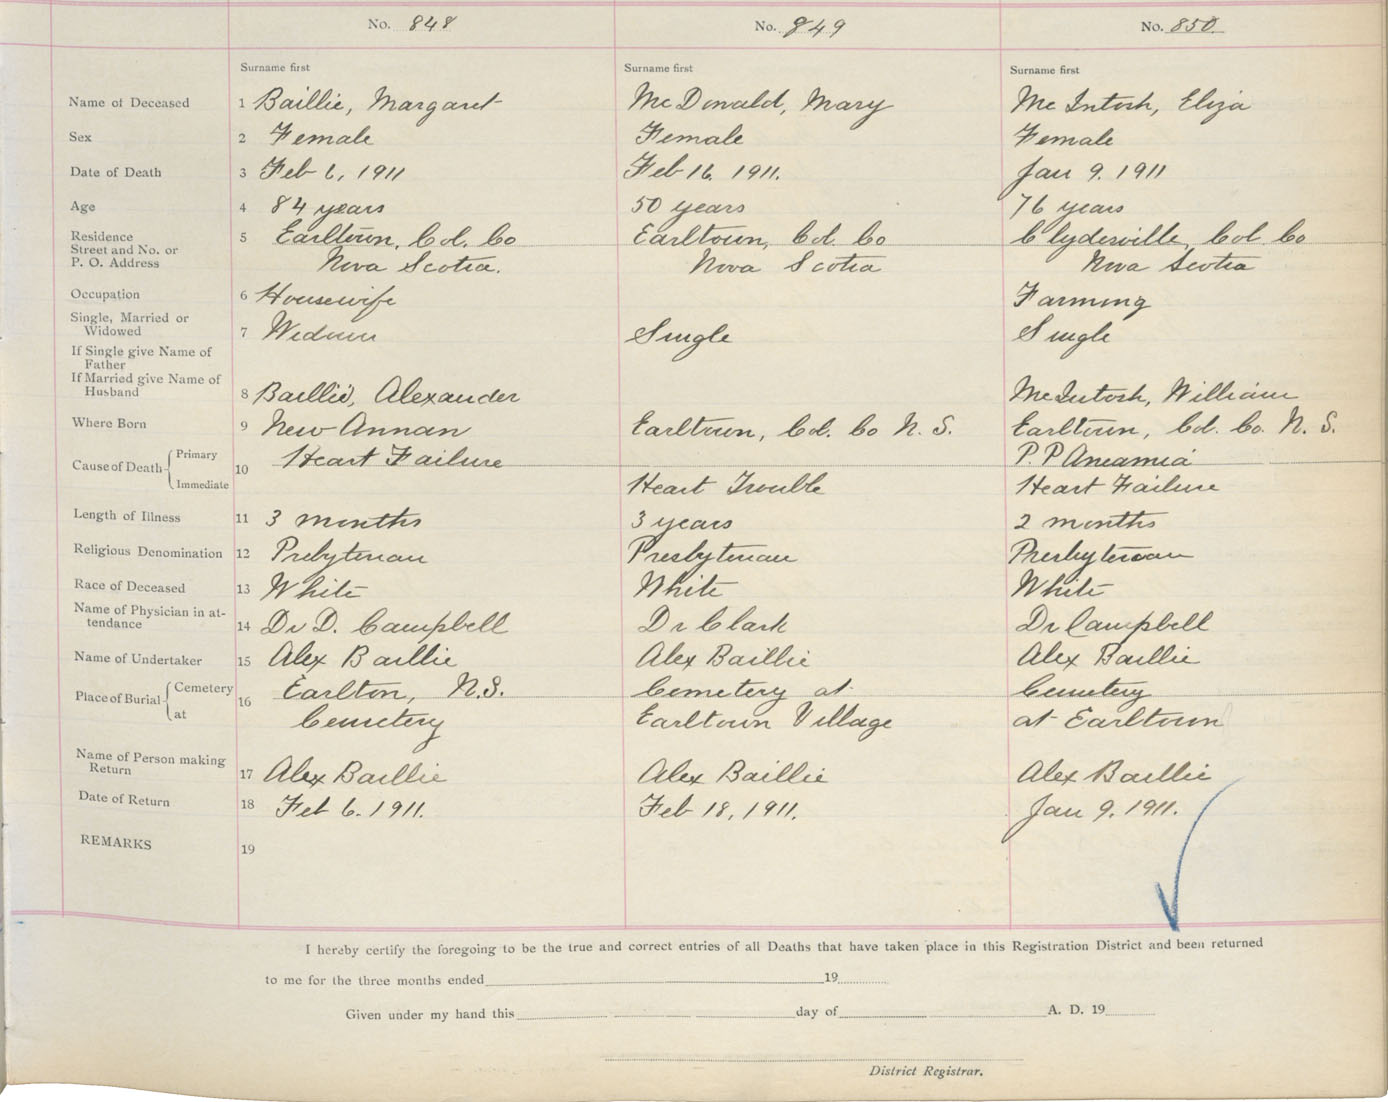 No. 848 No. 849 No. 850
Surname first Surname first Surname first
Name of Deceased 1 Baillie, Margaret McDonald, Mary McIntosh, Eliza
Sex 2 Female Female Female
Date of Death 3 Feb 6, 1911 Feb 16. 1911. Jan 9. 1911
Age 4 84 years 50 years 76 years
Residence 5 Earltown, Col. Co Earltown, Col. Co Clydesville, Col. Co
Street and No. or
P. O. Address Nova Scotia. Nova Scotia Nova Scotia
Occupation 6 Housewife Farming
Single, Married or
Widowed 7 Widow Single Single
If Single give Name of
Father
If Married give Name of
Husband 8 Baillie, Alexander McIntosh, William
Where Born 9 New Annan Earltown, Col. Co N. S. Earltown, Col. Co. N. S.
Cause of Death Primary 10 Heart Failure P. P Aneamia
Immediate Heart Trouble Heart Failure
Length of Illness 11 3 months 3 years 2 months
Religious Denomination 12 Prebyterian Presbyterian Presbyterian
Race of Deceased 13 White White White
Name of Physician in at-
tendance 14 Dr D. Campbell Dr Clark Dr Campbell
Name of Undertaker 15 Alex Baillie Alex Baillie Alex Baillie
Place of Burial Cemetery 16 Earlton, N.S. Cemetery at Cemetery
at Cemetery Earltown Village at Earltown
Name of Person making
Return 17 Alex Baillie Alex Baillie Alex Baillie
Date of Return 18 Feb 6. 1911. Feb 18, 1911. Jan 9. 1911.
REMARKS 19
I hereby certify the foregoing to be the true and correct entries of all Deaths that have taken place in this Registration District and been returned
to me for the three months ended 19
Given under my hand this day of A. D. 19
District Registrar.